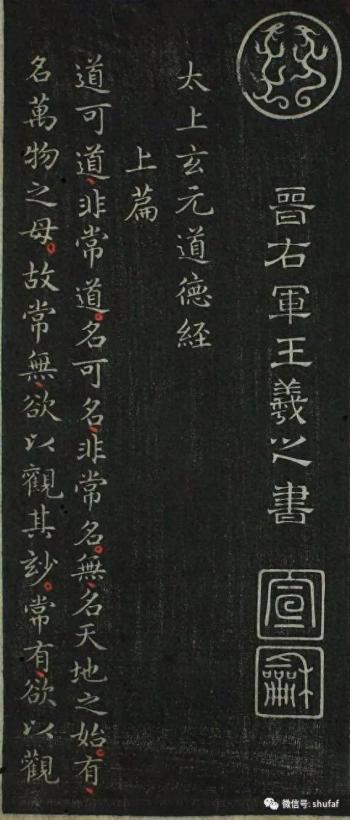 晉右軍王羲之書
宣龢
太上玄元道德經
上篇
道可道、非常道。名可名、非常名。無、名天地之始。有、
名萬物之母。故常無、欲以觀其玅。常有、欲以觀
微信号: shufaf